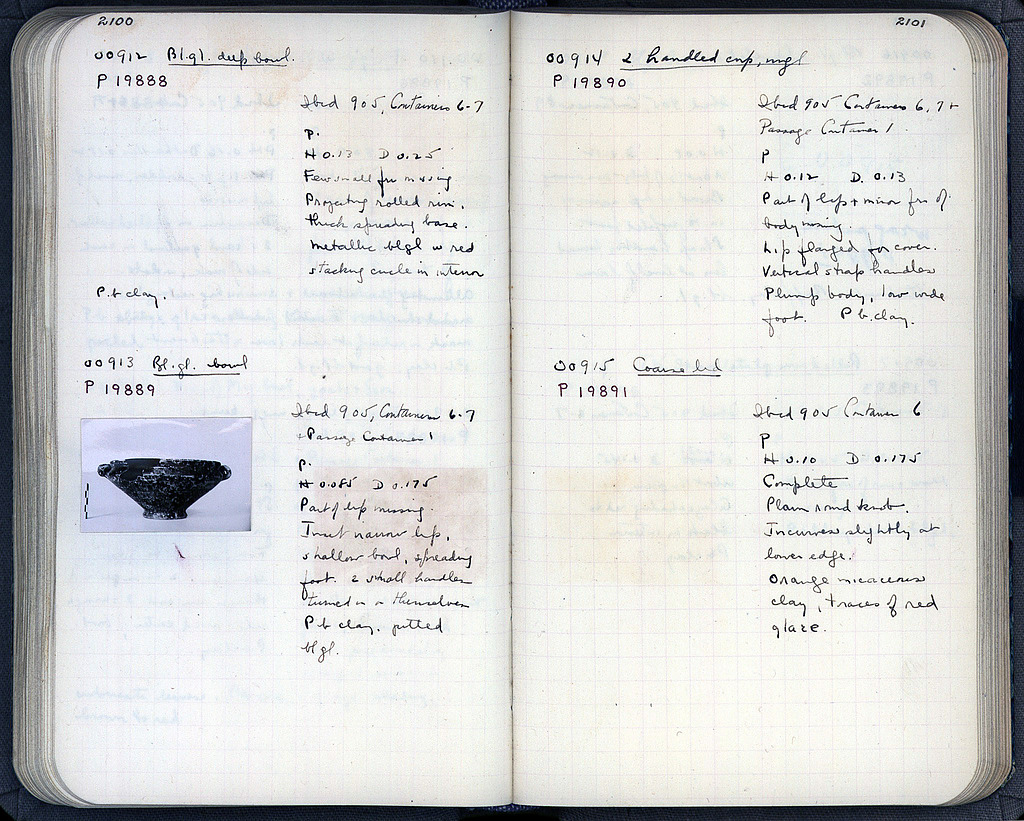 2100
OO912 Bl.gl. deep bowl.
P 19888
Ibid 905, Containers 6-7
P.
H 0.13 D 0.25
Few small frr missing
Projecting rolled rim,
thick spreading base.
Metallic blgl w red
stacking circle in interior
P.b clay.
OO913 Bl.gl. bowl
P 19889
Ibid 905, Containers 6-7
+ Passage Container 1
P.
H 0.085 D 0.175
Part of lip missing.
Inset narrow lip,
shallow bowl, spreading
foot. 2 small handles
turned in on themselves
P.b clay. pitted
blgl.
2101
OO914 2 handled cup, mgl
P 19890
Ibid 905 Containers 6, 7 +
Passage Container 1.
P
H 0.12 D. 0.13
Part of lip + minor frr of
body missing.
Lip flanged for cover.
Vertical strap handles
Plump body, low wide
foot. P b. clay.
OO915 Coarse lid
P 19891
Ibid 905 Container 6
P
H 0.10 D 0.175
Complete
Plain round knob.
Incurves slightly at
lower edge.
Orange micaceous
clay, traces of red
glaze.